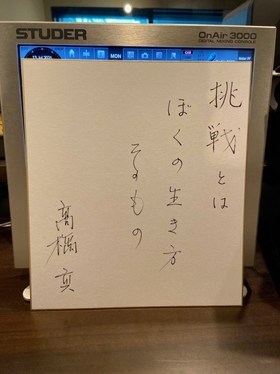 STUDER
OnAir 3000
DIGITAL MIXING CONSOLE
MON
挑戦とは
ぼくの生き方
そのもの
高橋亘